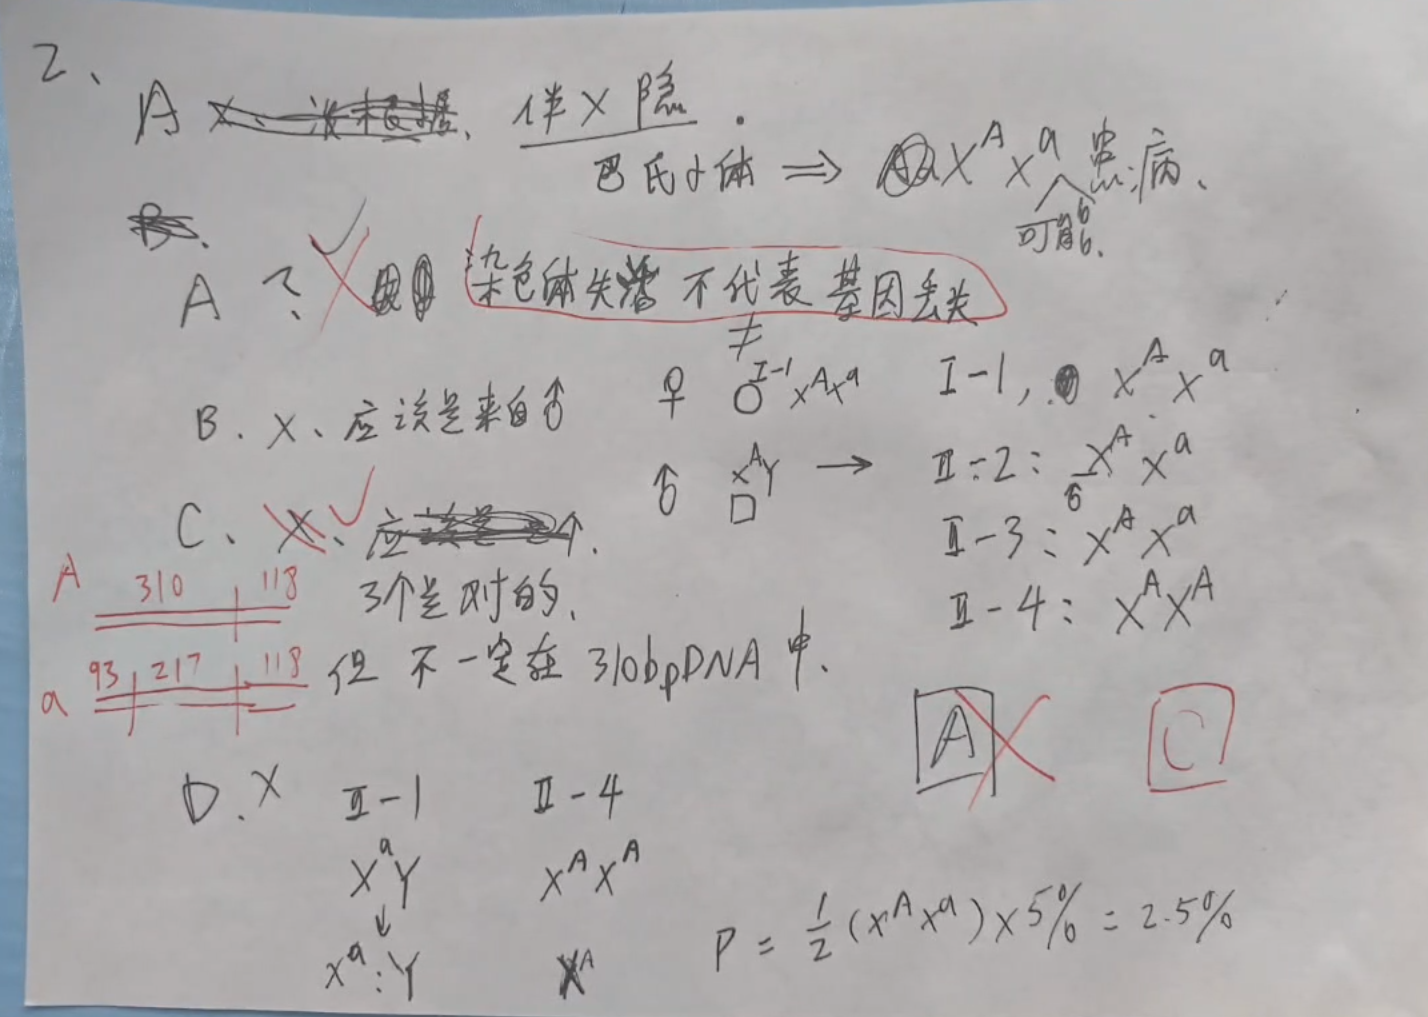 2、
A 伴X隐.
巴氏小体 ⇒ X^A X^a 患病、
可能.
B.
A ? 染色体失活 不代表 基因丢失
≠
B. X、应该是来自♂
♀ I-1 X^A X^a
♂ X^A Y →
I-1, X^A X^a
II-2: X^A X^a
II-3: X^A X^a
II-4: X^A X^A
C、X、✓ 应
3个是对的、
但 不一定在 310bpDNA中.
A 310 118
a 93 217 118
A C
D. X II-1 II-4
X^a Y X^A X^A
↓
X^a : Y X^A
P = 1/2 (X^A X^a) × 5% = 2.5%